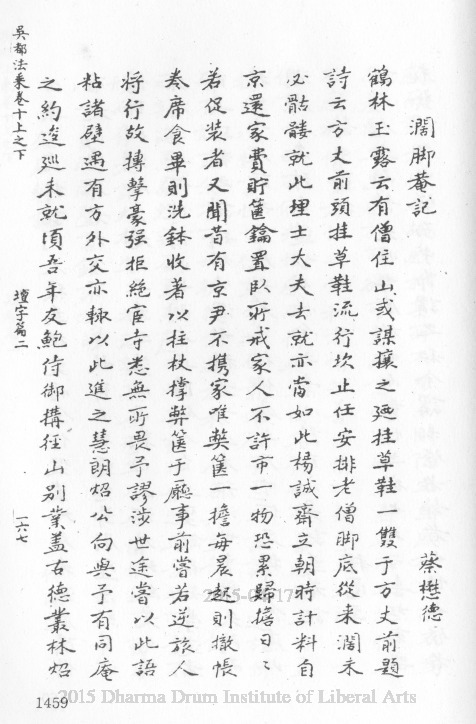 濶脚菴記
蔡懋德
鶴林玉露云有僧住山或謀攘之廼挂草鞋一雙于方丈前題
詩云方丈前頭挂草鞋流行坎止任安排老僧脚底從來濶未
必骷髏就此埋士大夫去就亦當如此楊誠齋立朝時計料自
京還家費貯篋鑰置臥所戒家人不許市一物恐累歸擔日〻
若促装者又聞昔有京尹不携家唯獘篋一擔每晨起則撤帳
卷席食畢則洗鉢收著以拄杖撑弊篋于廳事前嘗若逆旅人
将行故搏擊豪强拒絶宦寺悉無所畏予謬涉世途嘗以此語
粘諸壁遇有方外交亦輙以此進之慧朗炤公向與予有同庵
之約逡廵未就頃吾年友鮑侍御搆徑山别業盖古德叢林炤
吴都法乘卷十上之下
壇宇篇二
一六七
1459
2015 Dharma Drum Institute of Liberal Arts